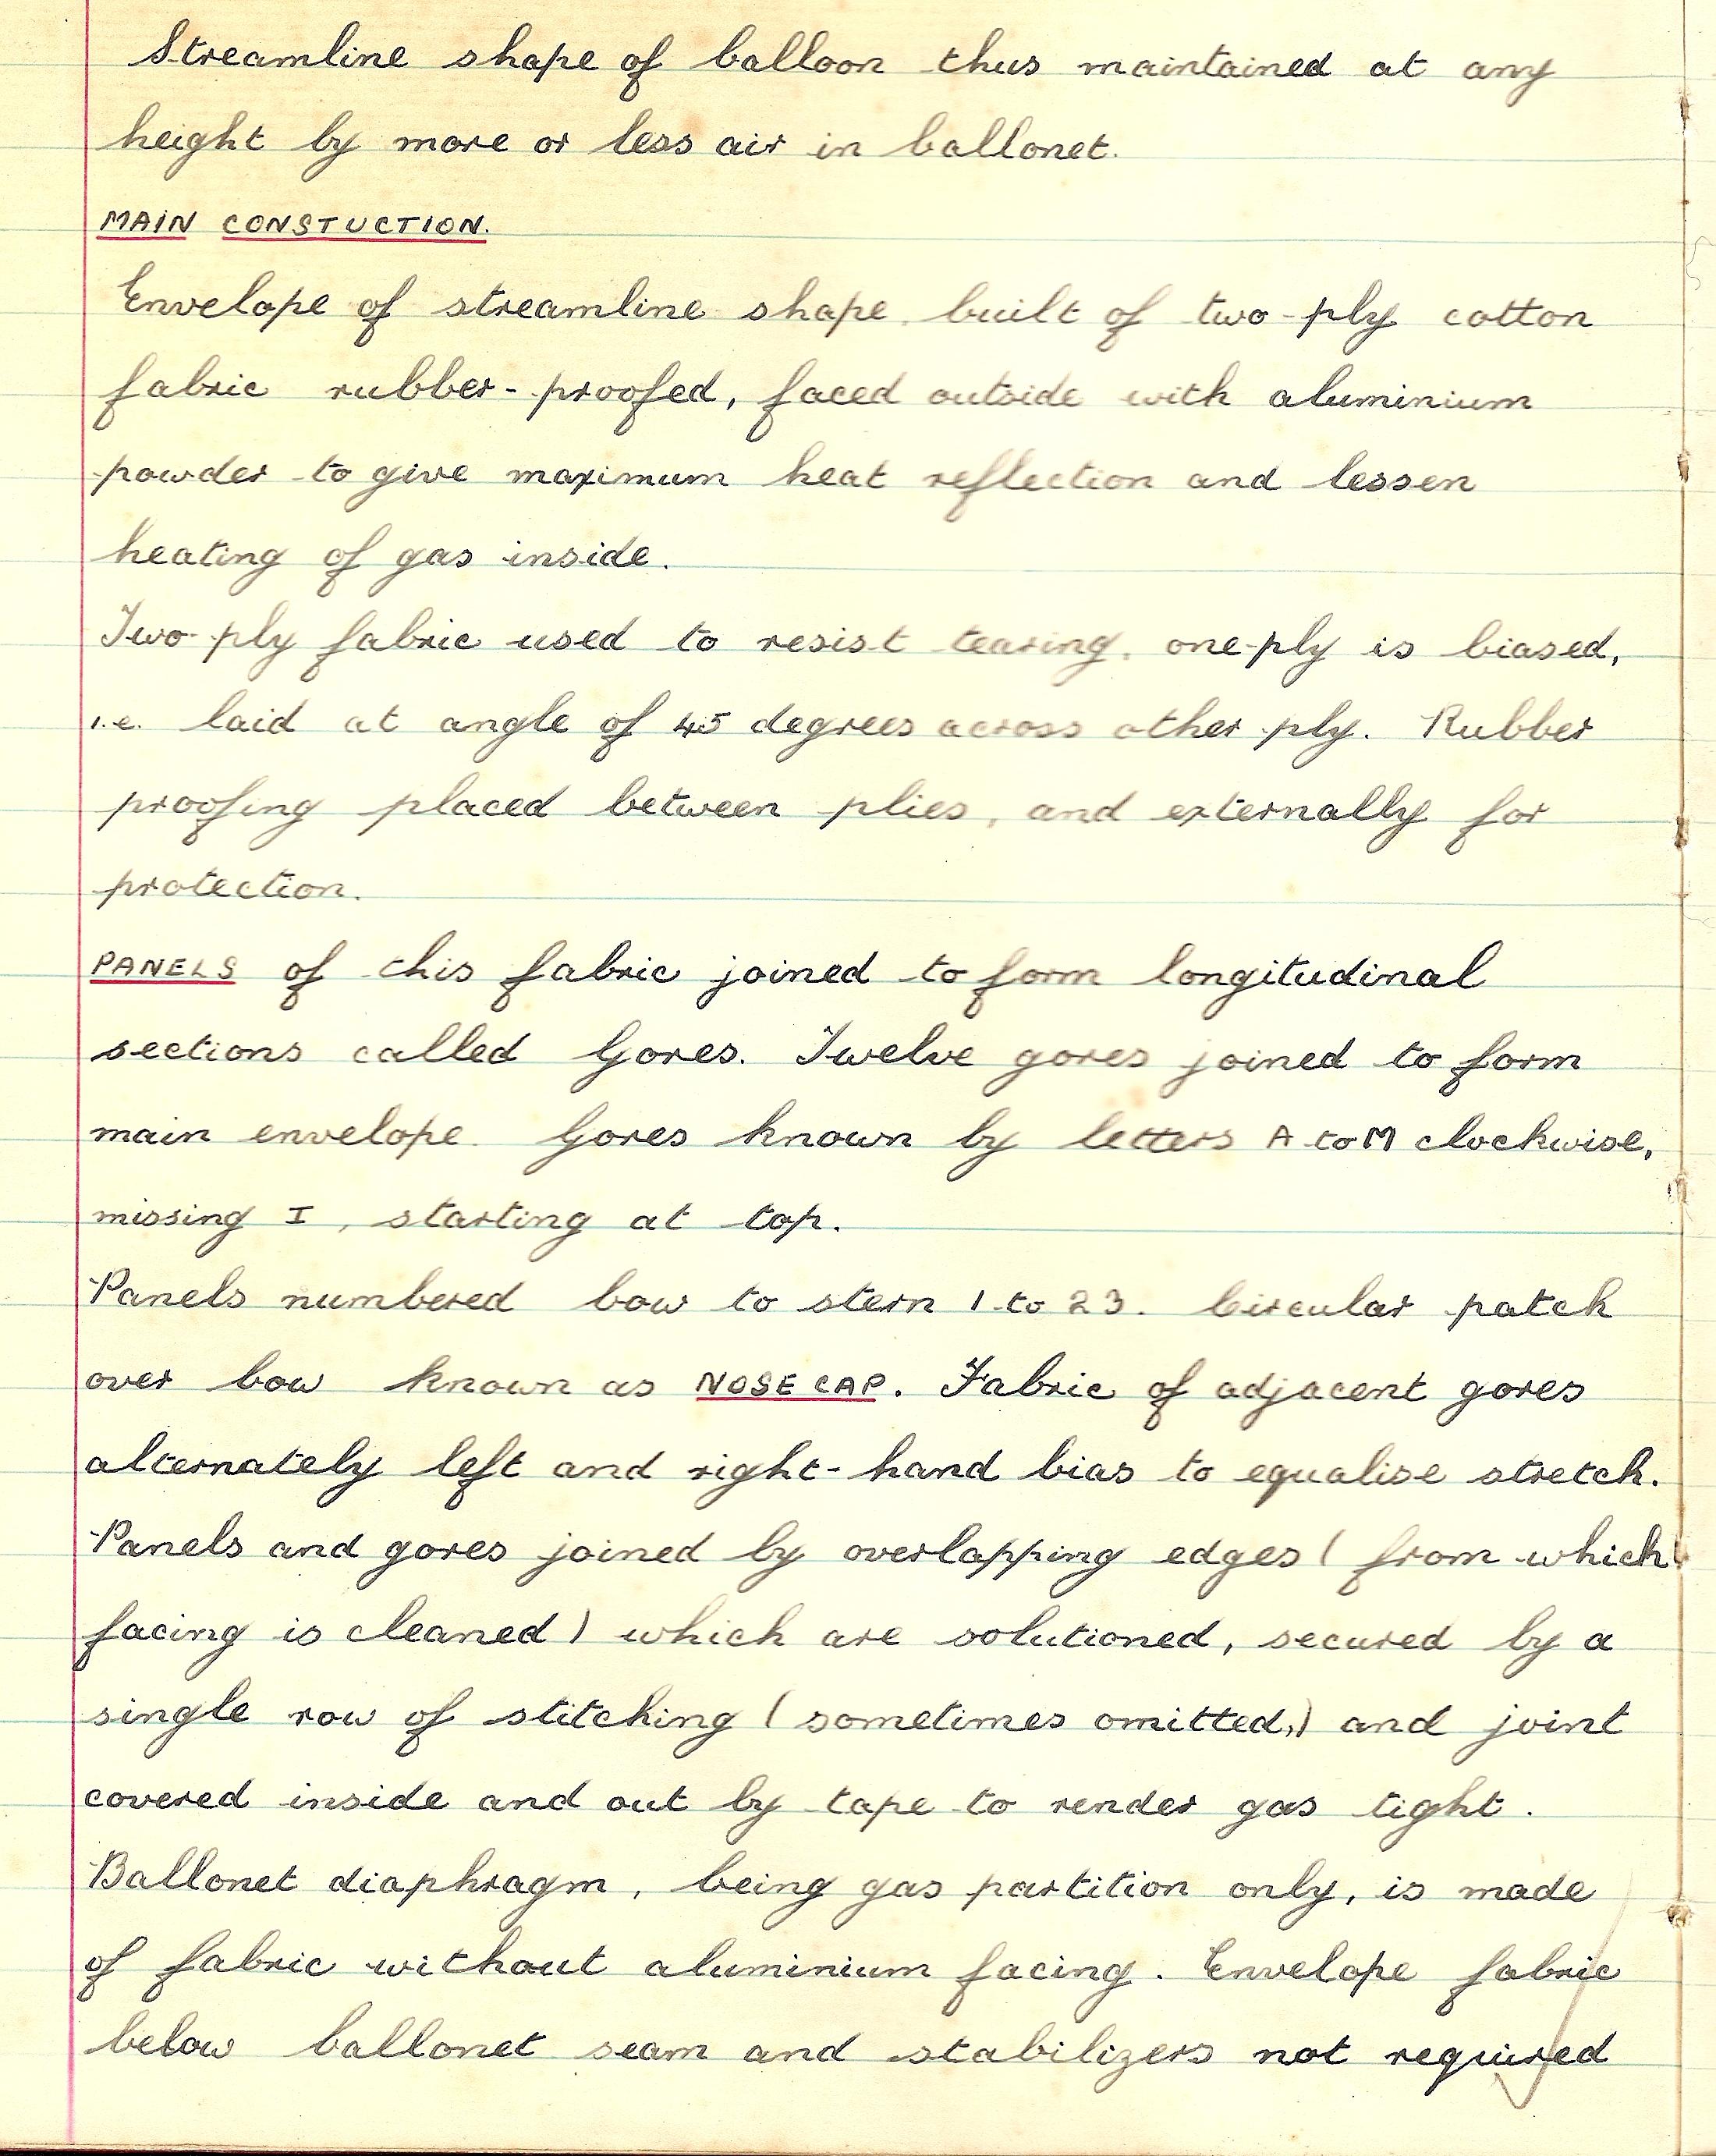 Streamline shape of balloon thus maintained at any
height by more or less air in ballonet.
MAIN CONSTUCTION.
Envelope of streamline shape, built of two-ply cotton
fabric rubber-proofed, faced outside with aluminium
powder to give maximum heat reflection and lessen
heating of gas inside.
Two-ply fabric used to resist tearing, one-ply is biased,
i.e. laid at angle of 45 degrees across other ply. Rubber
proofing placed between plies, and externally for
protection.
PANELS of this fabric joined to form longitudinal
sections called Gores. Twelve gores joined to form
main envelope. Gores known by letters A to M clockwise,
missing I, starting at top.
Panels numbered bow to stern 1 to 23. Circular patch
over bow known as NOSE CAP. Fabric of adjacent gores
alternately left and right-hand bias to equalise stretch.
Panels and gores joined by overlapping edges (from which
facing is cleaned) which are solutioned, secured by a
single row of stitching (sometimes omitted,) and joint
covered inside and out by tape to render gas tight.
Ballonet diaphragm, being gas partition only, is made
of fabric without aluminium facing. Envelope fabric
below ballonet seam and stabilizers not required